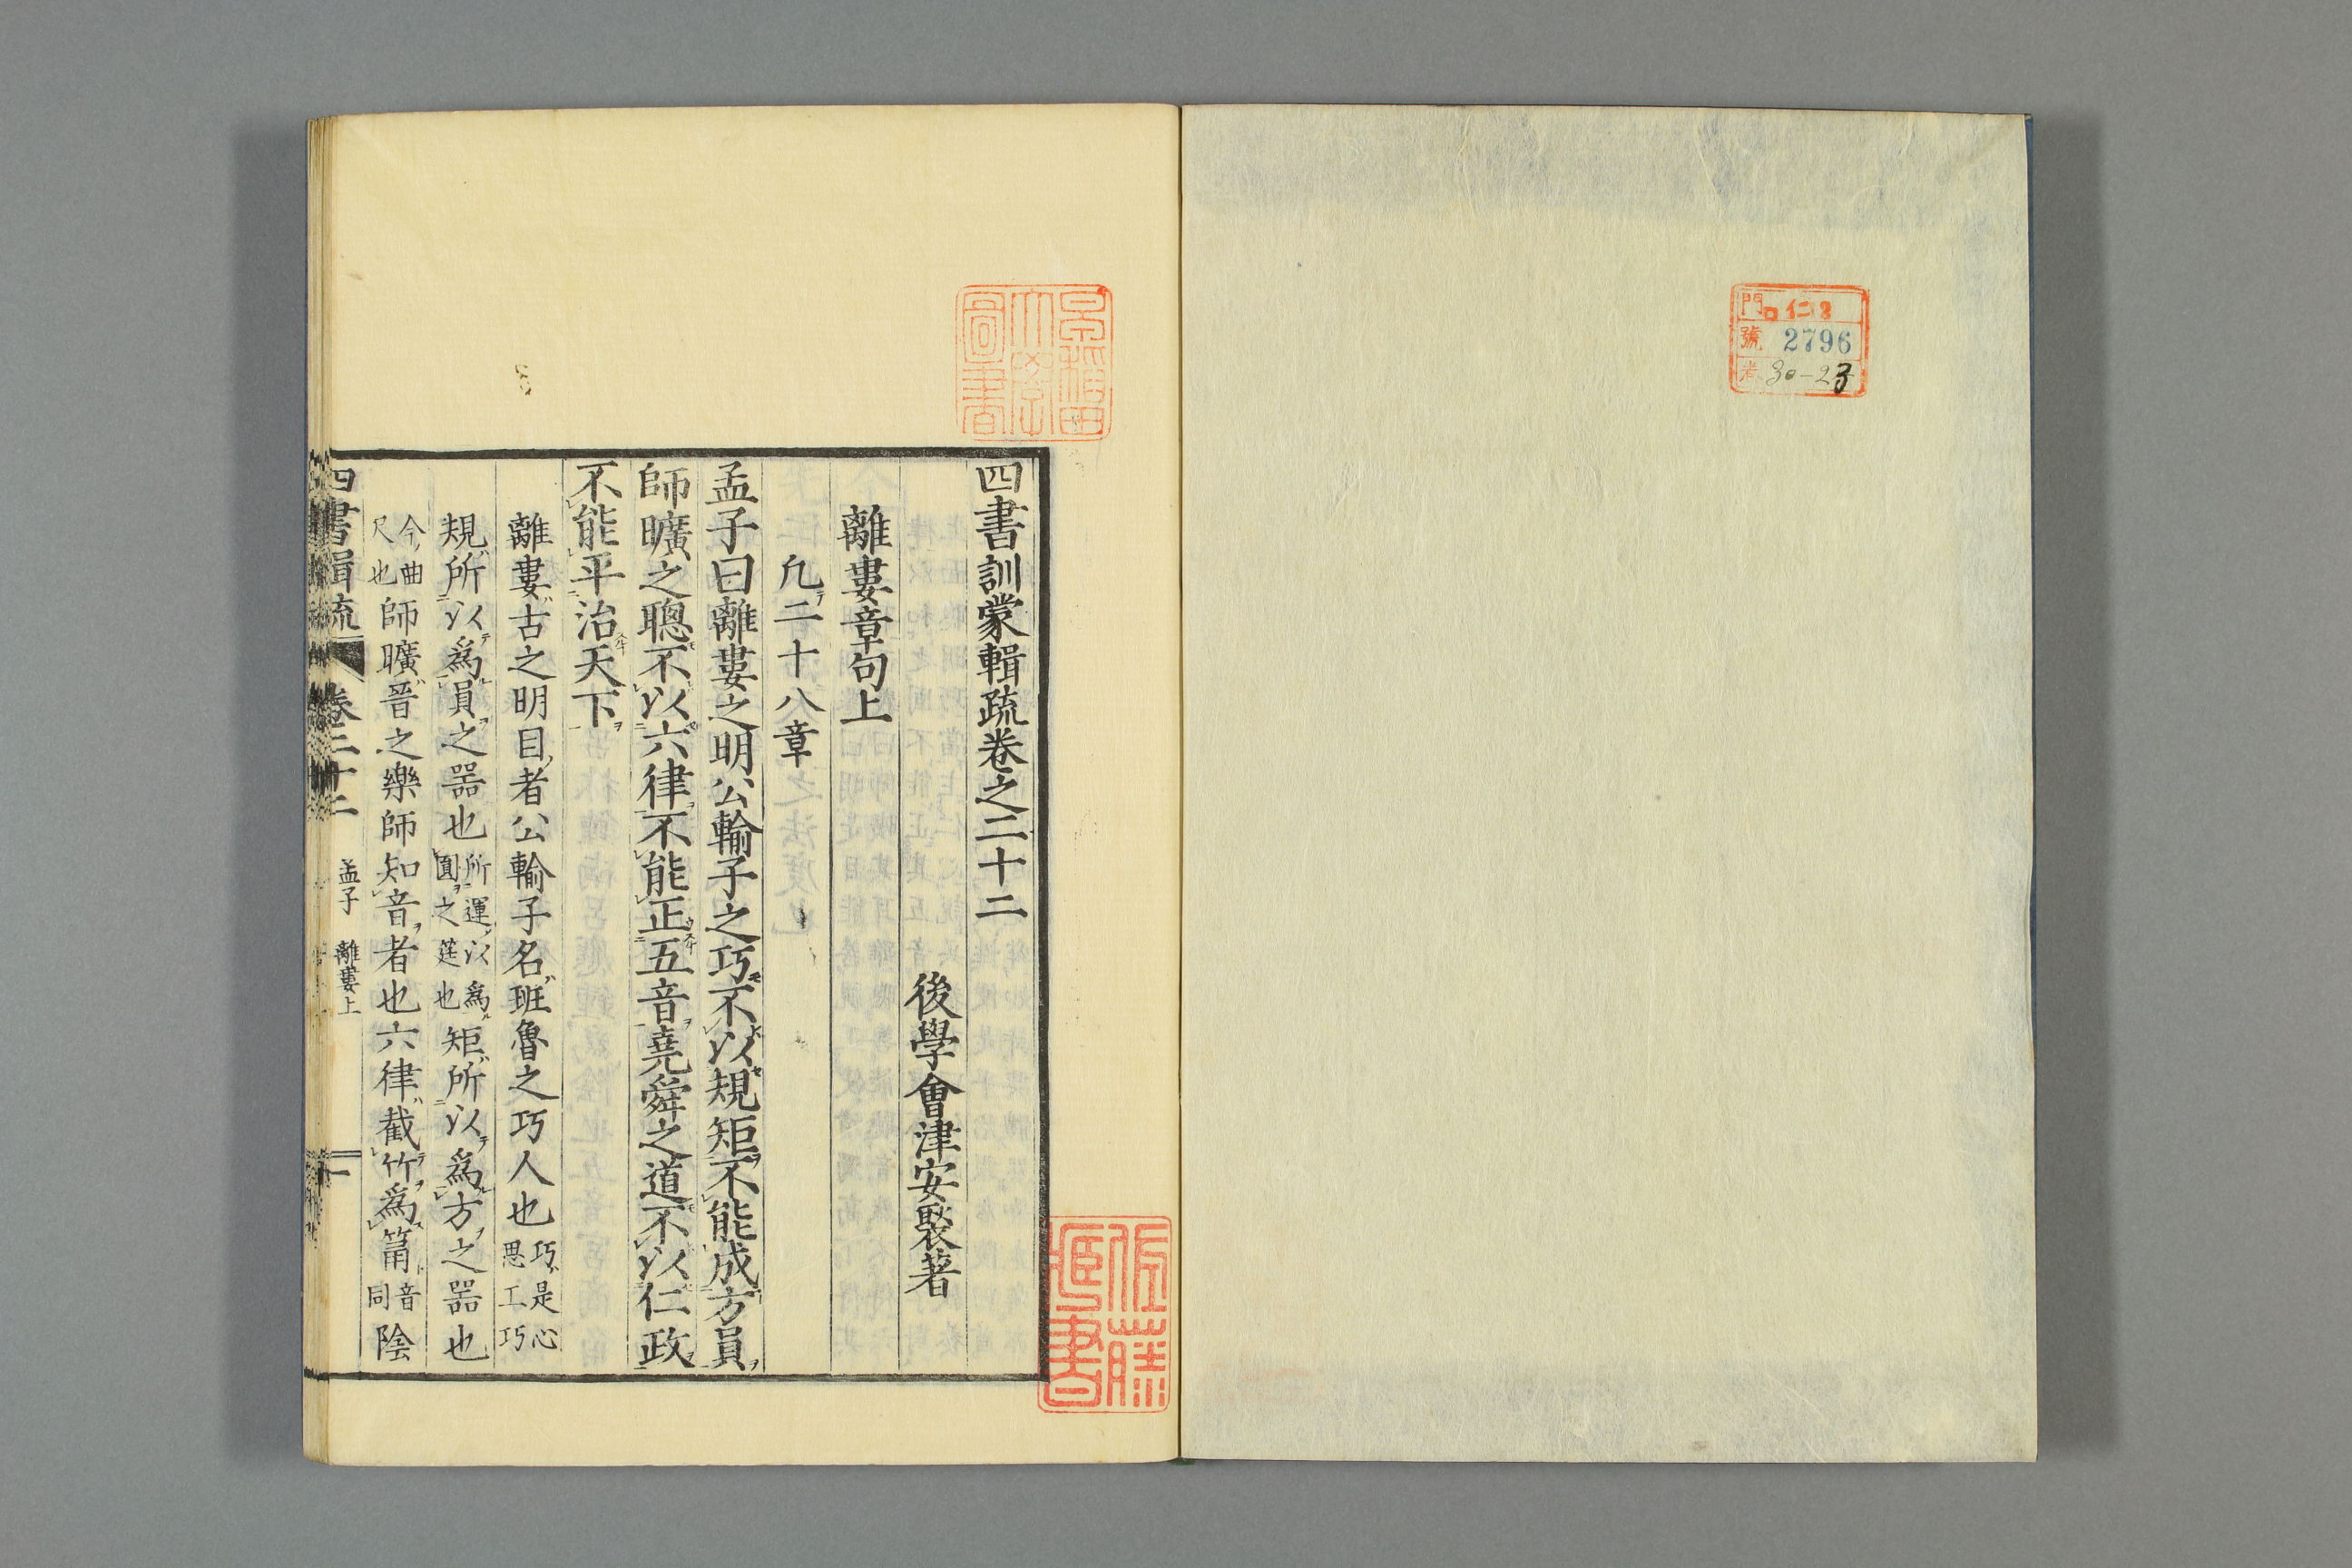 門 ロ 仁 3
號 2796
巻 30-23
早稲田
大學
圖書
四書訓蒙輯疏卷之二十二
後學會津安褧著
離婁章句上
凡二十八章
孟子曰離婁之明公輸子之巧不以規矩不能成方員
師曠之聰不以六律不能正五音堯舜之道不以仁政
不能平治天下
離婁古之明目者公輸子名班魯之巧人也巧是心思工巧
規所以爲員之器也所運以爲圓之筳也矩所以爲方之器也
今曲尺也師曠晉之樂師知音者也六律截竹爲筩音同陰
四書輯疏 卷二十二 孟子 離婁上 一
佐藤
書